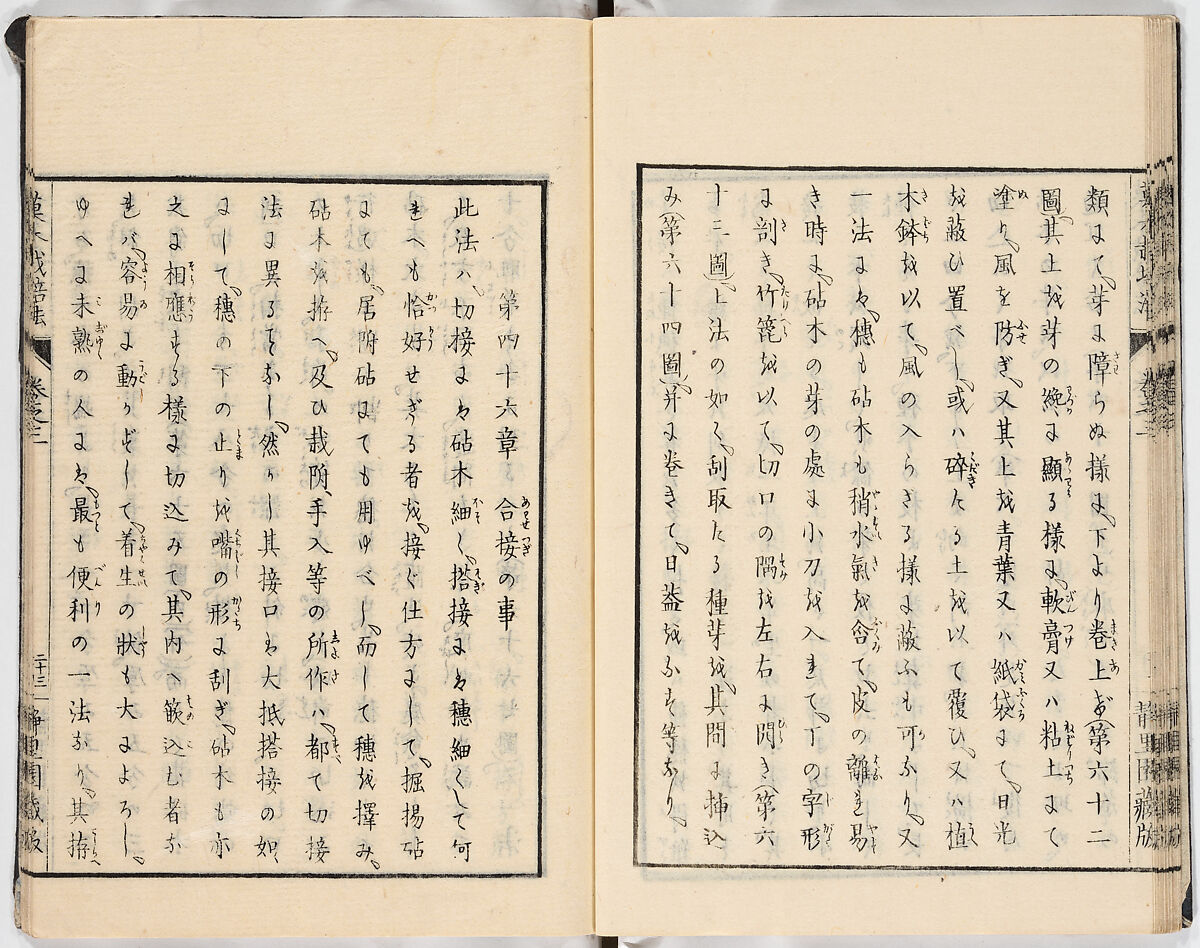 類にて、芽に障らぬ樣に、下より卷上げ(第六十二
圖)其上を芽の纔に顯る樣に、軟膏又ハ粘土にて
塗り、風を防ぎ、又其上を青葉又ハ紙袋にて、日光
を蔽ひ置べし、或ハ碎たる土を以て覆ひ、又ハ植
木鉢を以て、風の入らざる樣に蔽ふも可なり、又
一法にハ、穗も砧木も稍水氣を含て、皮の離れ易
き時に、砧木の芽の處に小刀を入れて、丁の字形
に剖き、竹篦を以て、切口の隅を左右に開き(第六
十三圖)上法の如く、刮取たる種芽を、其間に挿込
み(第六十四圖)并に卷きて、日葢をなす等なり、
第四十六章 合接の事
此法ハ、切接にハ砧木細く、搭接にハ穗細くして何
れへも恰好せざる者を、接ぐ仕方にして、掘揚砧
にても、居附砧にても用ゆべし、而して穗を擇み、
砧木を拵へ、及ひ栽附、手入等の所作ハ、都て切接
法に異るゝなし、然りし其接口ハ大抵搭接の如く
にして、穗の下の止りを嘴の形に刮ぎ、砧木も亦
之に相應する樣に切込みて、其内へ篏込む者な
れバ、容易に動かずして、着生の狀も大によろし、
ゆへに未熟の人にハ、最も便利の一法なり、其拵
卷之二
二十三
靜里園藏版